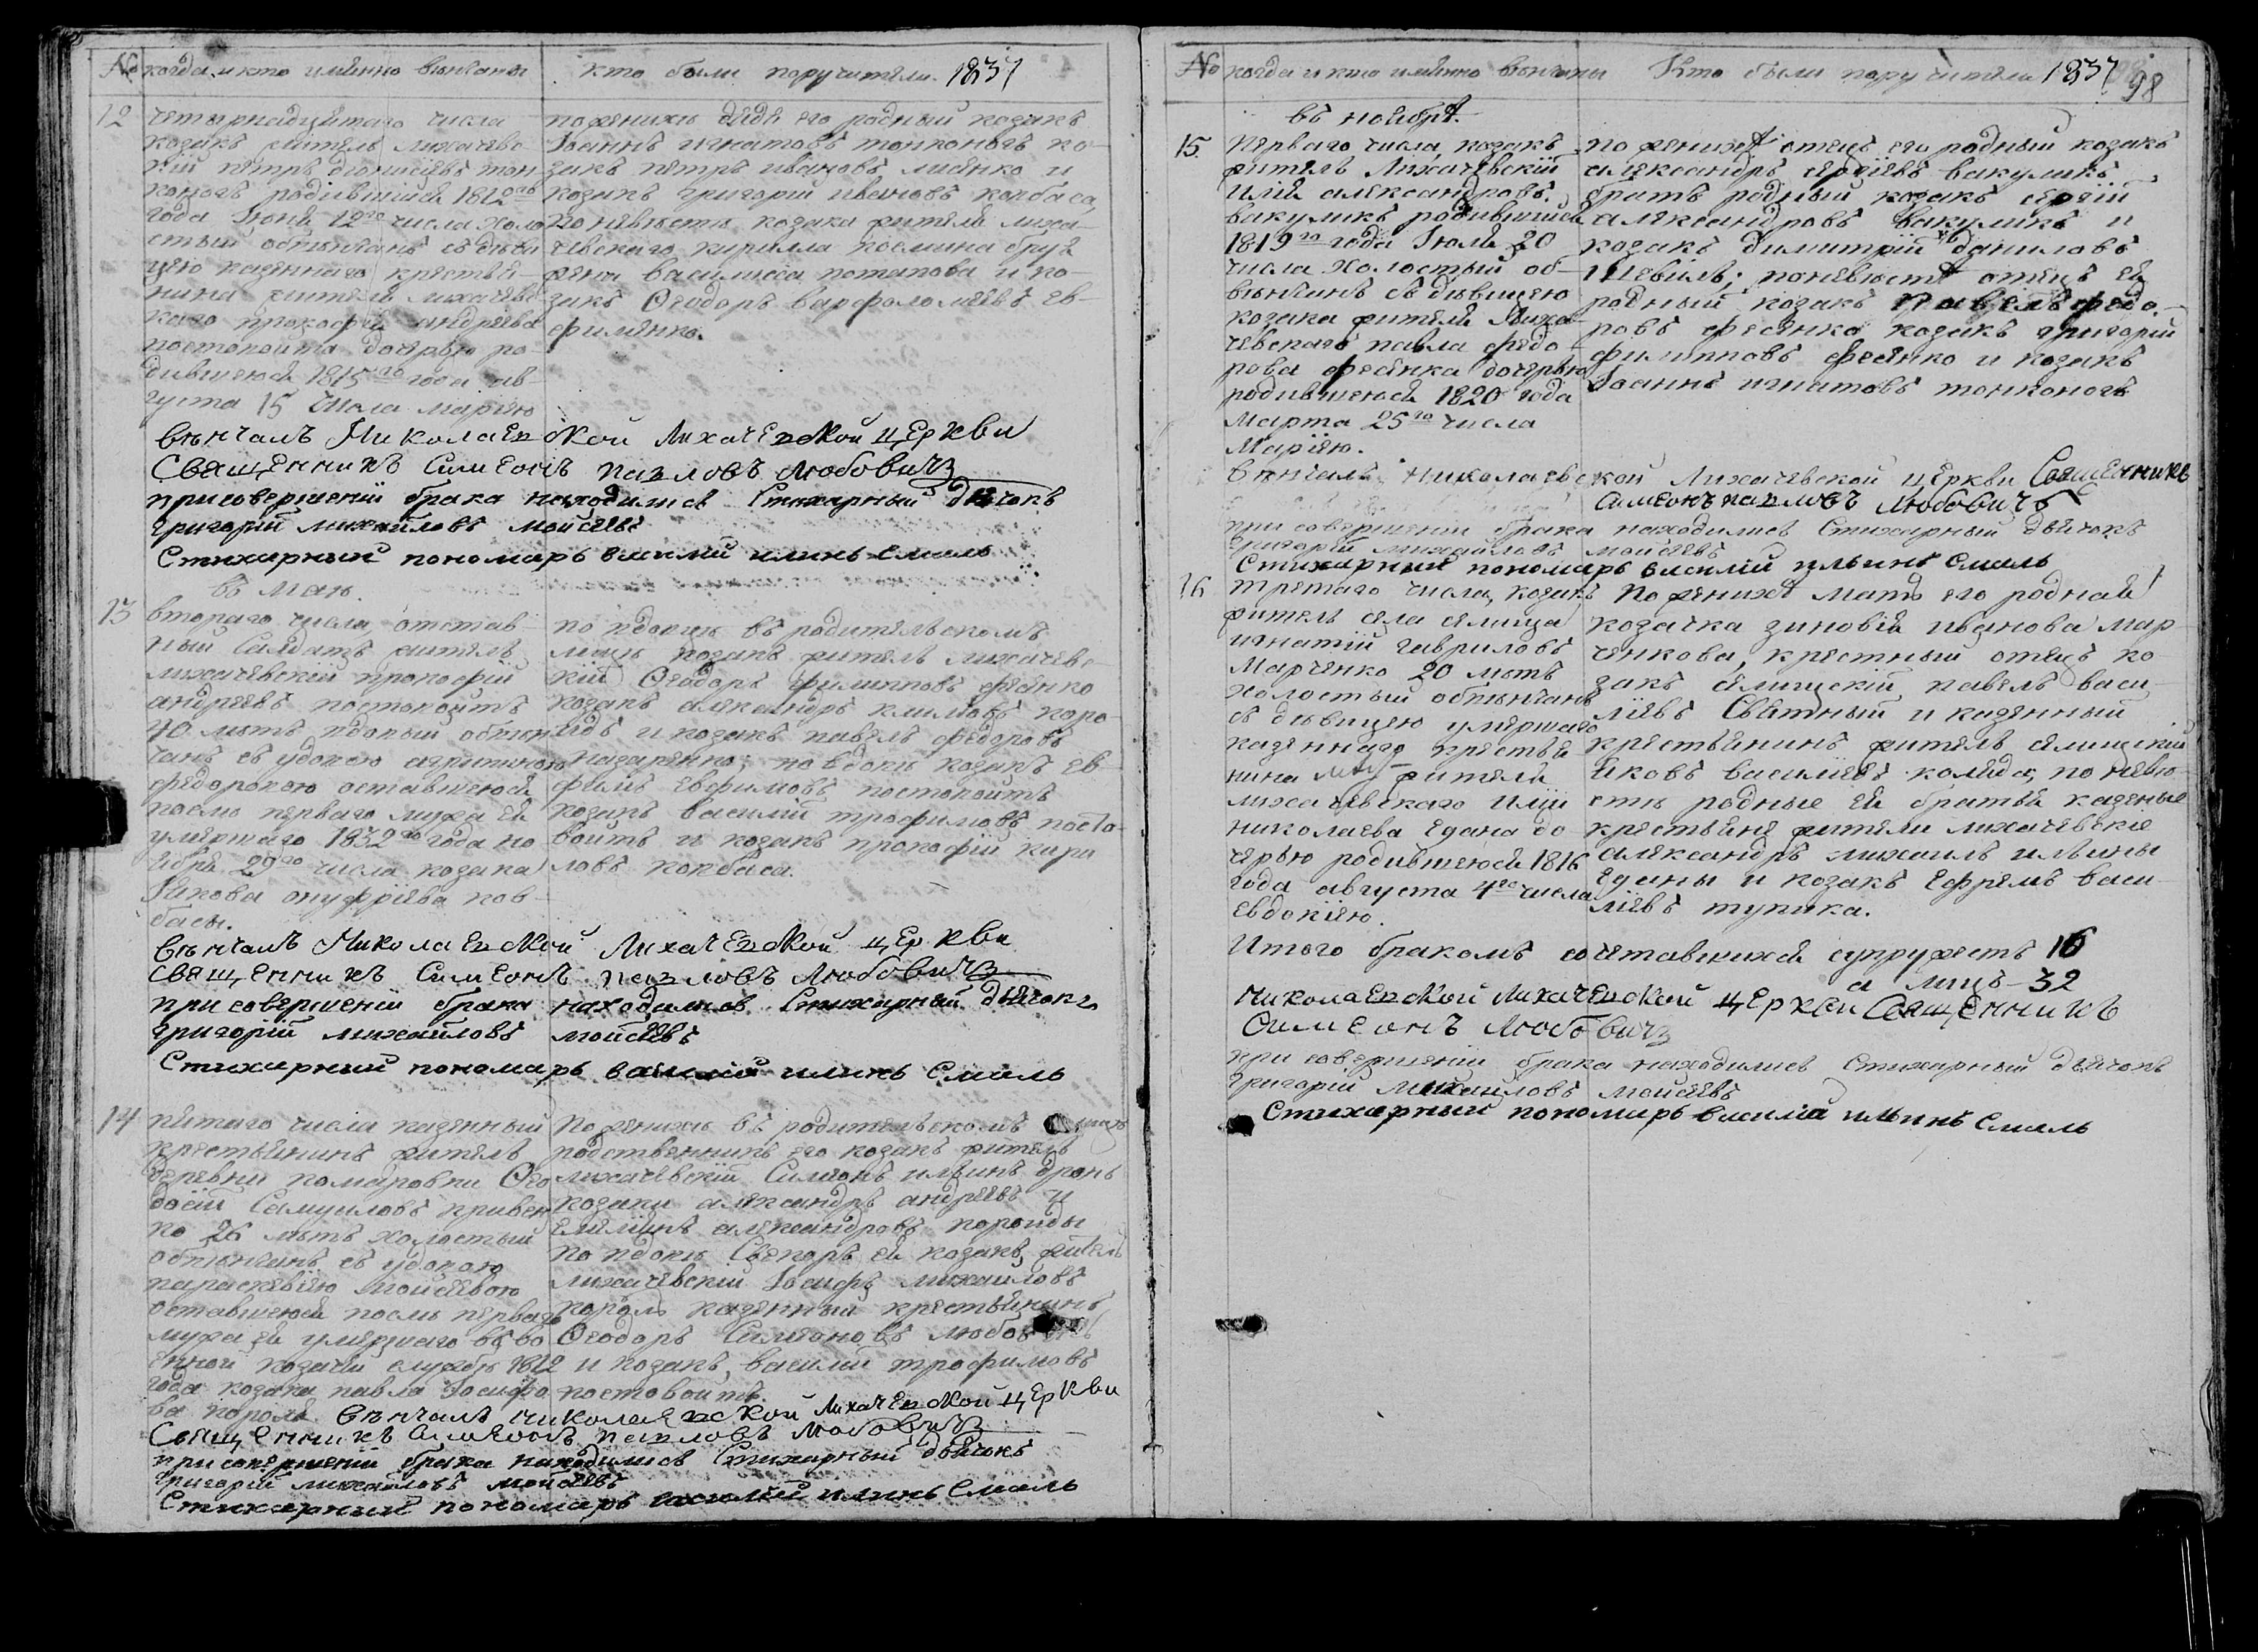 № когда и кто имянно венчаны
кто были поручители. 1837
12
четырнадцятаго числа
козакъ житель лихачевс
кій петръ дїонисїевъ тон
коногъ родившійся 1812го
года Іюня 12го числа холо
стый обвѣнчанъ съ дѣви
цею казеннаго крестья-
нина жителя лихачевс
каго прокофія андрѣева
постовойта дочерью ро-
дившеюся 1815го года ав-
густа 15 числа марїею
по жениху дядя его родный козакъ
Іоаннъ игнатовъ тонконогъ ко-
закъ петръ ивановъ
козакъ григорій ивановъ ковбаса,
по невѣсте козака жителя лиха-
чевскаго кирилла
василиса потапова и ко-
закъ Ѳеодоръ варфоломѣевъ ев-
фименко.
вѣнчалъ Николаевской Лихачевской церкви
Священникъ Симеонъ павловъ Любовичъ
при совершенїи брака находились Стихарный дьячокъ
григорїй михайловъ мойсѣевъ
Стихарный пономарь василий илинъ Смаль
въ маи.
13
втораго числа, отстав
ный Салдатъ житель
лихачевскїй прокофїй
андрѣевъ постовойтъ
40 лѣтъ вдовый обвѣн
чанъ съ удовою
федоровою оставшеюся
послѣ перваго мужа ея
умершаго 1832го года но
ября 29го числа козака
Якова онуфрїева ков-
басы.
по вдовцу въ родительскомъ
мѣсце козакъ житель лихачевс
кїй Ѳеодоръ филипповъ фесенко
козакъ александръ климовъ
и козакъ павелъ федоровъ
назаренко; по вдове козакъ ев-
фимъ евфимовъ постовойтъ
козакъ василїй трофимовъ посто-
войтъ и козакъ прокофїй кири
ловъ ковбаса.
вѣнчалъ Николаевской Лихачевской церкви
Священникъ Симеонъ павловъ Любовичъ
при совершенїи брака находились Стихарный дьячокъ
григорїй михайловъ мойсѣевъ
Стихарный пономарь василий илинъ Смаль
14
пятаго числа казенный
крестьянинъ житель
деревни комаровки Ѳео
досїй Самуиловъ кривен
ко 26 лѣтъ холостый
обвѣнчанъ съ удовою
параскевїею мойсѣевою
оставшеюся послѣ перваго
мужа ея умершаго въ во
енной козачей службѣ 1812
года козака павла Іосифо
ва короля.
По жениху въ родительскомъ
родственникъ его козакъ житель
лихачевскїй Симеонъ ильинъ
козаки александръ андрѣевъ и
александровъ
по вдове Свекоръ ея козакъ житель
лихачевскїй Іосифъ михайловъ
король казенный крестьянинъ
Ѳеодоръ Симеоновъ
и козакъ василїй трофимовъ
постовойтъ.
вѣнчалъ николаевской Лихачевской церкви
Священникъ Симеонъ павловъ Любовичъ
при совершенїи брака находились Стихарный дьячокъ
григорїй михайловъ мойсѣевъ
Стихарный пономарь василий илинъ Смаль
№ когда и кто имянно венчаны
Кто были поручители 1837
98
въ ноябрѣ.
15.
Перваго числа, козакъ
житель Лихачевскїй
Илїя александровъ
вакуликъ родившїйся
1819го года Іюля 20
числа холостый об-
вѣнчанъ съ дѣвицею
козака жителя Лиха-
чевскаго павла федо-
рова фесенка дочерью
родившеюся 1820 года
марта 25го числа
Марїею.
по женихѣ отецъ его родный козакъ
александръ сергїевъ вакуликъ
братъ родный козакъ сергїй
александровъ вакуликъ и
козакъ димитрїй даниловъ
по невѣстѣ отецъ ея
родный козакъ Павелъ федо-
ровъ фесенко козакъ григорїй
филипповъ фесенко и козакъ
Іоаннъ игнатовъ тонконогъ
вѣнчалъ Николаевской Лихачевской церкви Священникъ
Симеонъ павловъ Любовичъ
при совершенїи брака находились Стихарный дьячокъ
григорїй михайловъ мойсѣевъ
Стихарный пономарь василїй ильинъ Смаль
16
третаго числа, козакъ
житель села селища
игнатїй гавриловъ
Марченко 20 лѣтъ
холостый обвѣнчанъ
съ дѣвицею умершаго
казеннаго крестья
нина жителя
лихачевскаго Илїи
николаева едана до-
черью родившеюся 1816
года августа 4го числа
Евдокїею.
По женихѣ мать его родная
козачка зиновїя иванова мар-
ченкова, крестный отецъ ко
закъ селищскїй павелъ васи-
лїевъ Сватный и казенный
крестьянинъ житель селищскїй
яковъ василїевъ коляда, по невѣ-
стѣ родные ея братья казеные
крестьяне жители лихачевские
александръ михаилъ ильины
еданы и козакъ ефремъ васи-
лїевъ тупика.
Итого бракомъ сочетавшихся супружествъ 16
а лицъ - 32
николаевской Лихачевской церкви Священникъ
Симеонъ Любовичъ
при совершенїи брака находились Стихарный дьячокъ
григорїй михайловъ мойсѣевъ
Стихарный пономарь василїй ильинъ Смаль